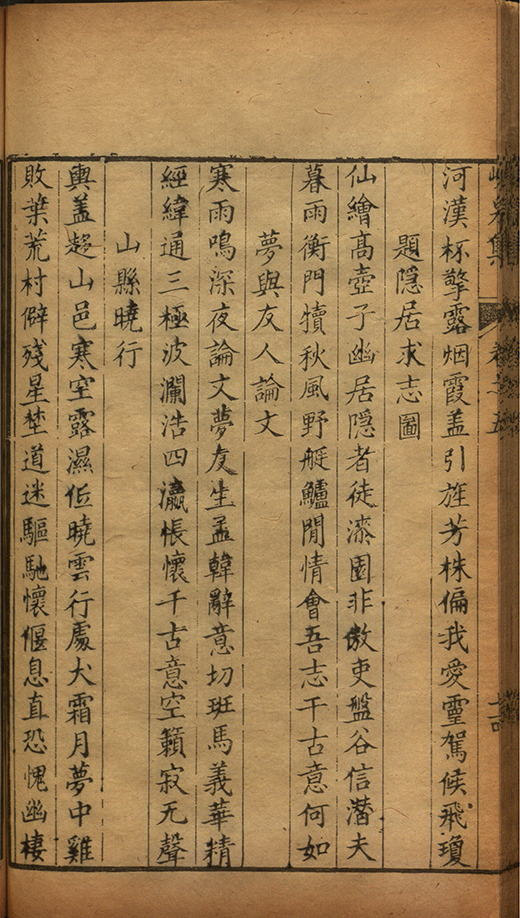 集 卷之五
河漢杯擎露烟霞盖引旌芳株偏我愛靈駕候飛瓊
題隱居求志圖
仙繪高壺子幽居隱者徒漆園非傲吏盤谷信潜夫
暮雨衡門犢秋風野艇鱸閒情會吾志千古意何如
夢與友人論文
寒雨鳴深夜論文夢友生孟韓辭意切班馬義華精
經緯通三極波瀾浩四瀛悵懷千古意空籟寂无聲
山縣曉行
輿盖趍山邑寒空露濕低曉雲行處犬霜月夢中雞
敗葉荒村僻殘星埜道迷驅馳懷偃息直恐愧幽棲